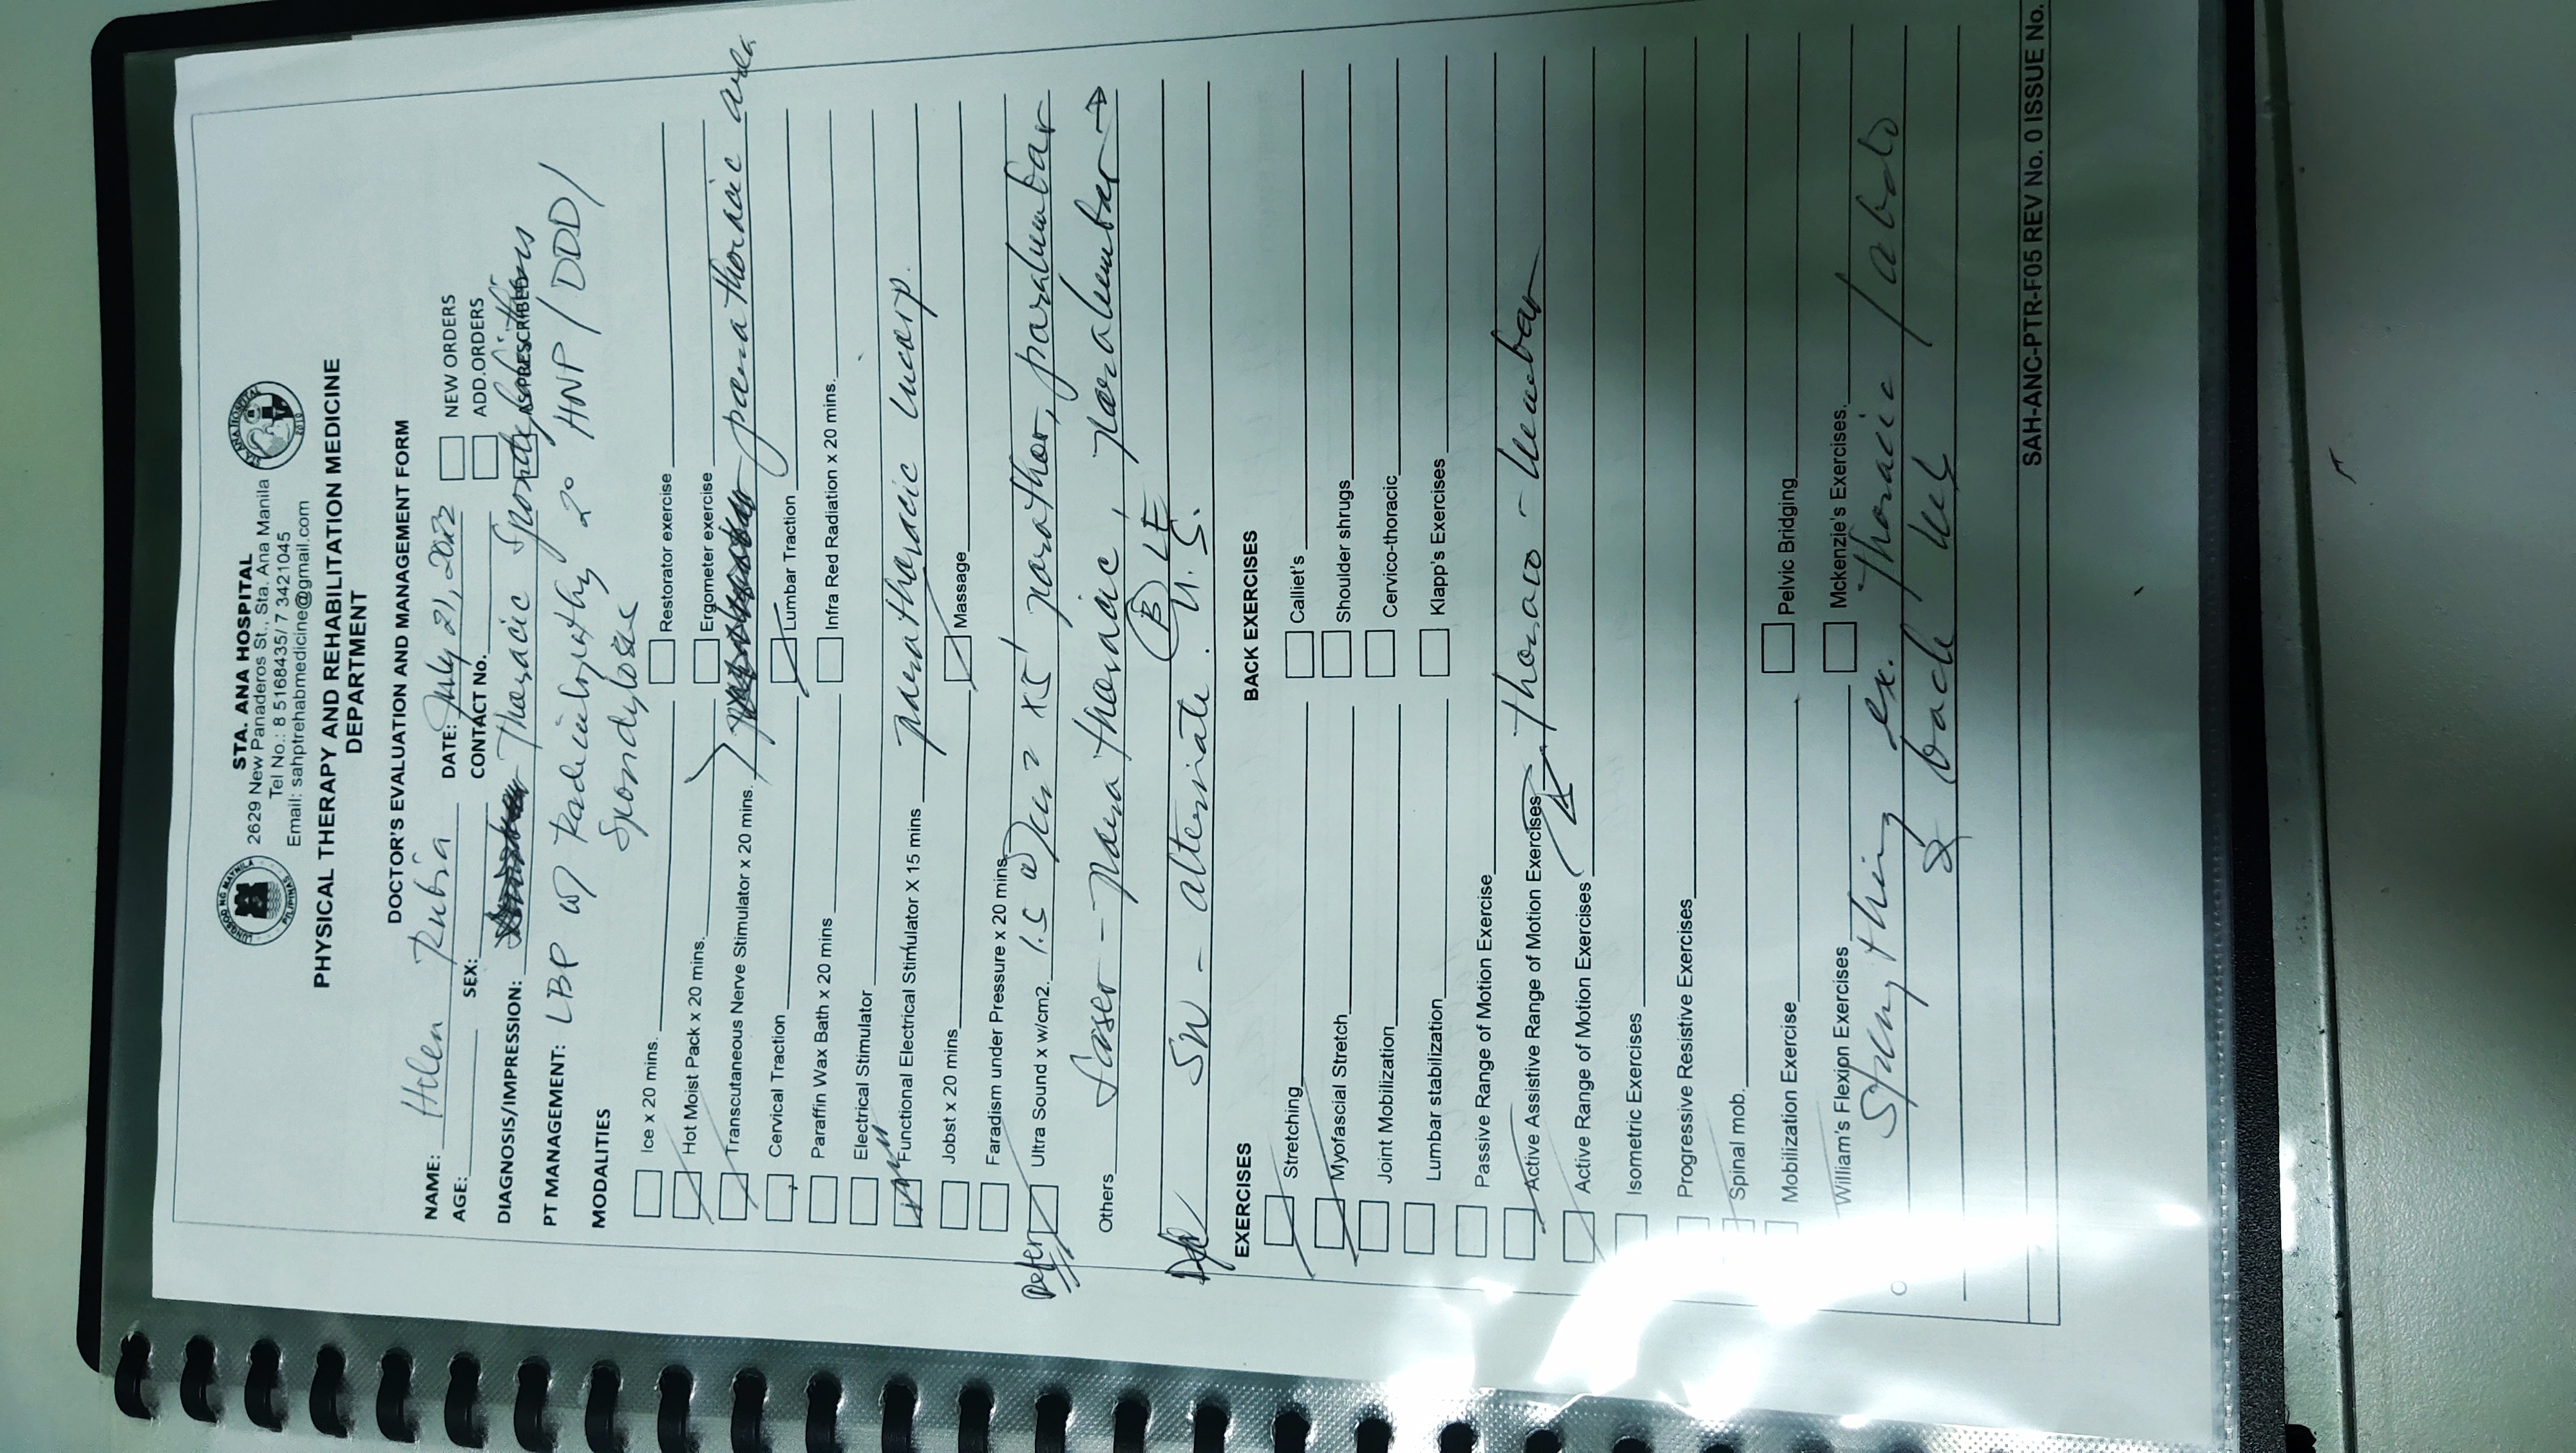 LUNGSOD NG MAYNILA
PILIPINAS
STA. ANA HOSPITAL
2010
STA. ANA HOSPITAL
2629 New Panaderos St., Sta. Ana Manila
Tel No.: 8 5168435/ 7 3421045
Email: sahptrehabmedicine@gmail.com
PHYSICAL THERAPY AND REHABILITATION MEDICINE
DEPARTMENT
DOCTOR'S EVALUATION AND MANAGEMENT FORM
NAME: Helen Rubia DATE: July 21, 2022 NEW ORDERS
AGE: SEX: CONTACT No. ADD.ORDERS
DIAGNOSIS/IMPRESSION: Thoracic AS PRESCRIBED
PT MANAGEMENT: LBP w/ Radiculopathy 2° HNP / DDD /
Spondylosis
MODALITIES
Ice x 20 mins. Restorator exercise
Hot Moist Pack x 20 mins. Ergometer exercise
Transcutaneous Nerve Stimulator x 20 mins. parathoracic area
Cervical Traction Lumbar Traction
Paraffin Wax Bath x 20 mins Infra Red Radiation x 20 mins.
Electrical Stimulator
Functional Electrical Stimulator X 15 mins parathoracic incorp.
Jobst x 20 mins Massage
Faradism under Pressure x 20 mins
Defer Ultra Sound x w/cm2. 1.5 w/cm2 x5' parathor, paralumbar
Others laser - parathoracic, paralumbar →
B LE
SW - alternate U.S.
EXERCISES BACK EXERCISES
Stretching Calliet's
Myofascial Stretch Shoulder shrugs
Joint Mobilization Cervico-thoracic
Lumbar stabilization Klapp's Exercises
Passive Range of Motion Exercise
Active Assistive Range of Motion Exercises thoraco - lumbar
Active Range of Motion Exercises
Isometric Exercises
Progressive Resistive Exercises
Spinal mob.
Mobilization Exercise Pelvic Bridging
William's Flexion Exercises Mckenzie's Exercises.
Strengthing ex. thoracic / abdo
& back
SAH-ANC-PTR-F05 REV No. 0 ISSUE No.